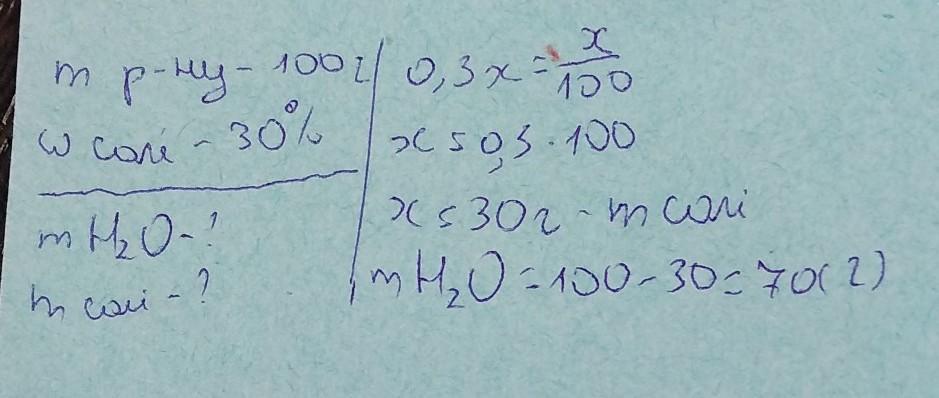 m р-ну - 100г
w солі - 30%
m H₂O - ?
m солі - ?
0,3x = x/100
x = 0,3 · 100
x = 30г - m солі
m H₂O = 100 - 30 = 70(г)